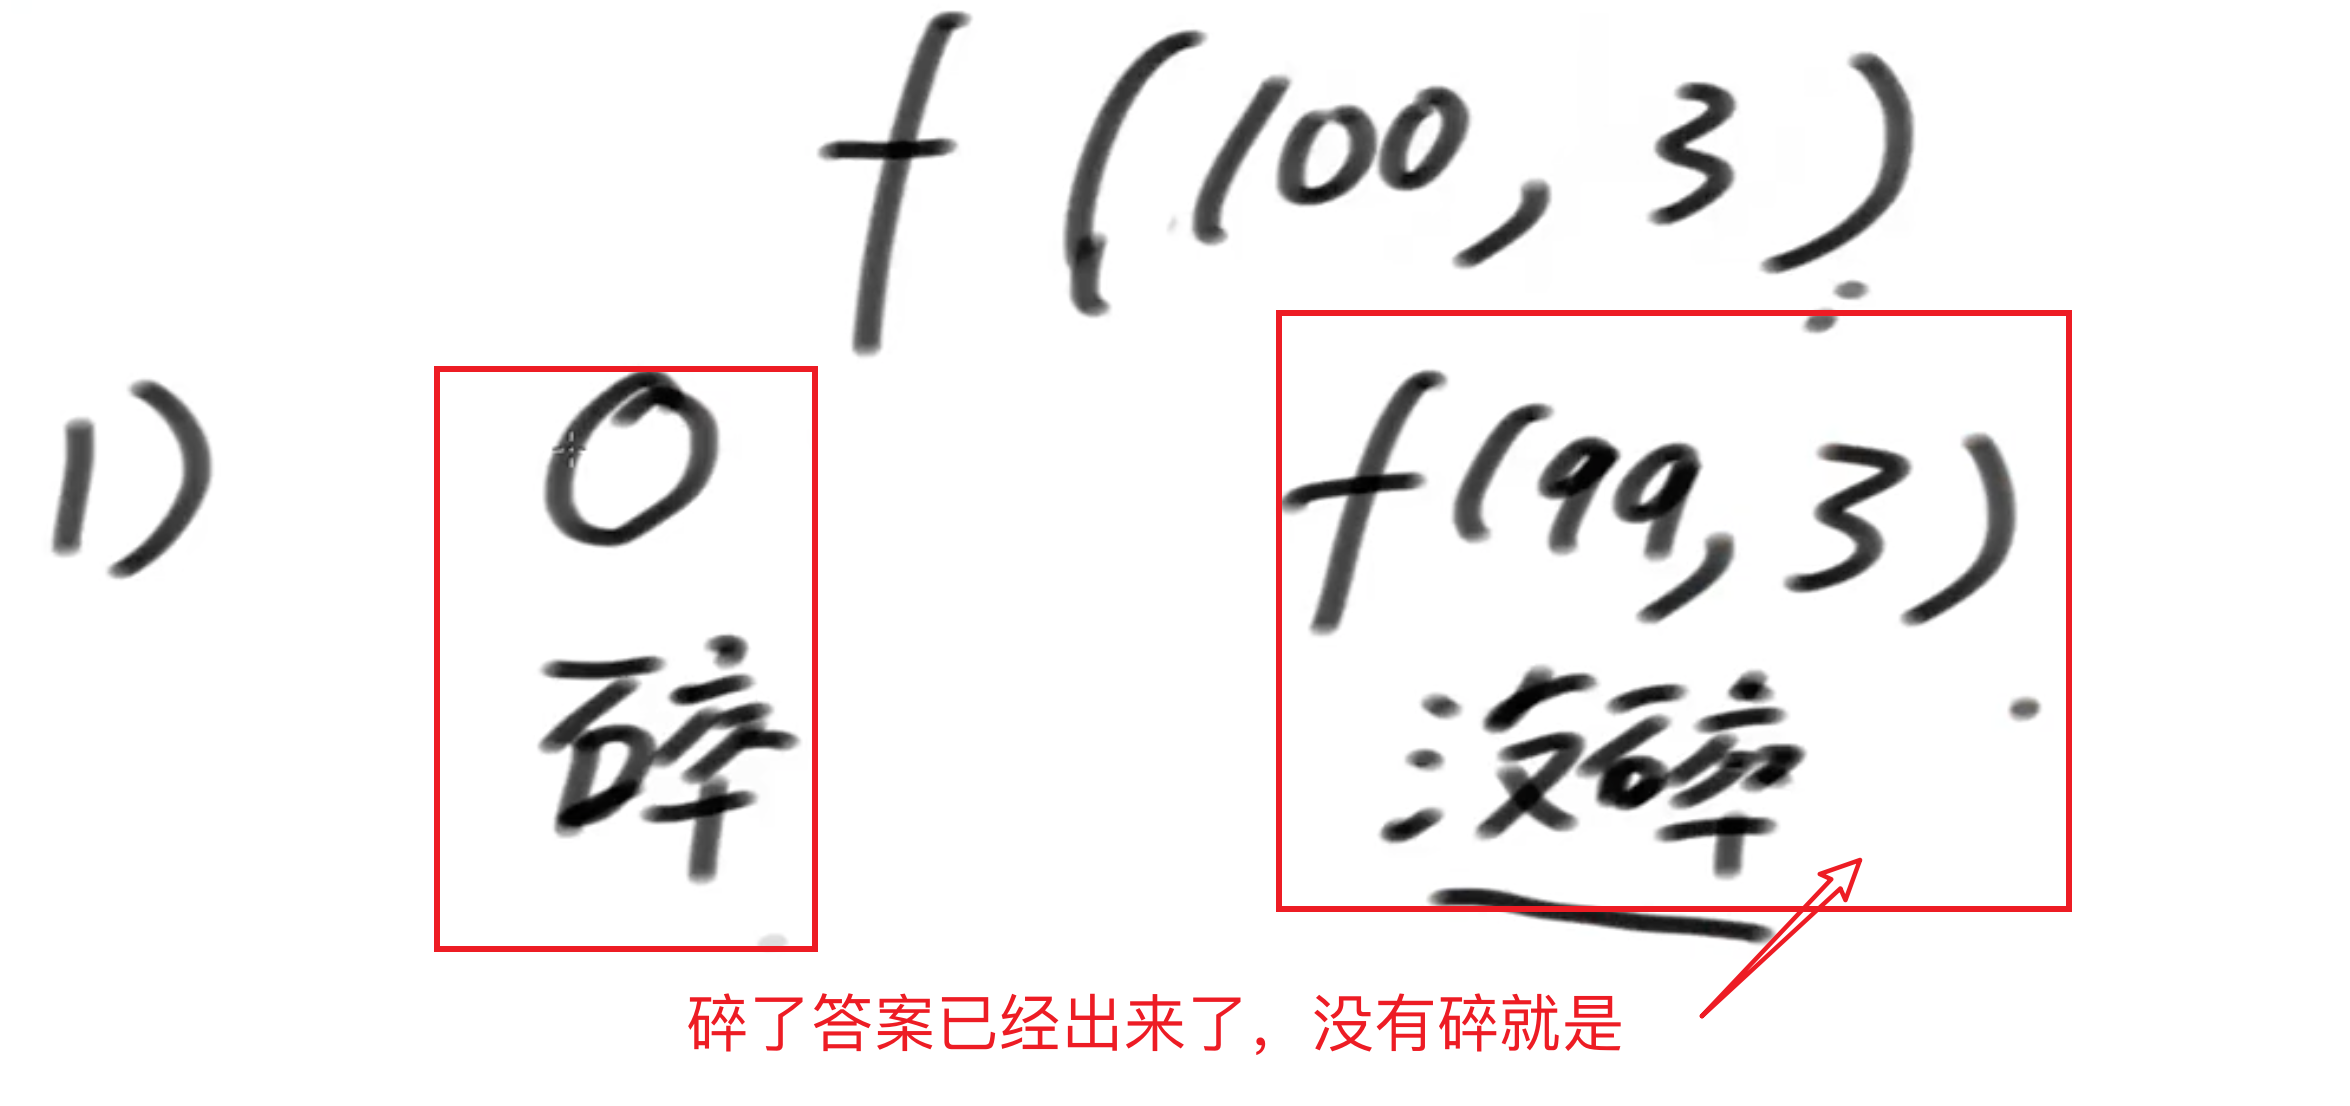 f(100, 3)
1) 0 f(99, 3)
碎 没碎
碎了答案已经出来了，没有碎就是